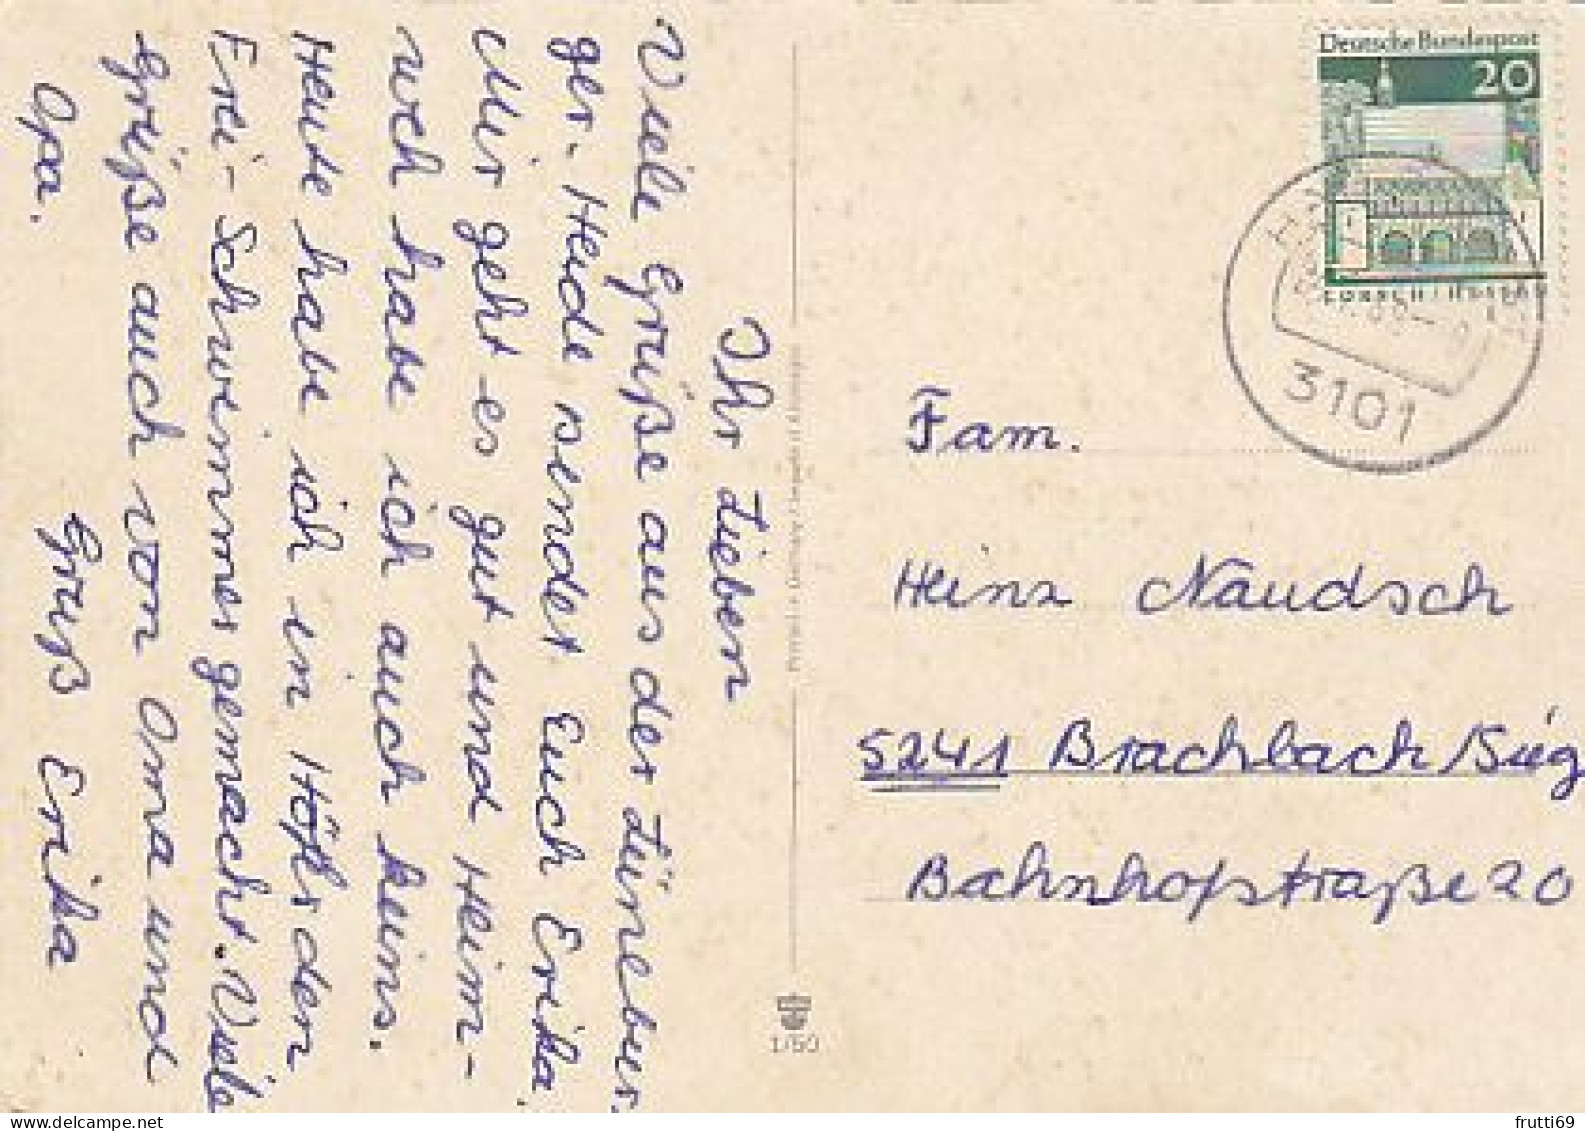 Ihr Lieben
Viele Grüße aus der Lünebur
ger-Heide sendet Euch Erika.
Mir geht es gut und Heim-
weh habe ich auch keins.
Heute habe ich in Höfrs den
Frei-Schwimmer gemacht. Viele
Grüße auch von Oma und
Opa.
Gruß Erika
Deutsche Bundespost
20
LORSCH / HESSEN
3101
Fam.
Heinz Naudsch
5241 Brachbach/Sieg
Bahnhofstraße 20
1/50
delcampe.net
frutti69